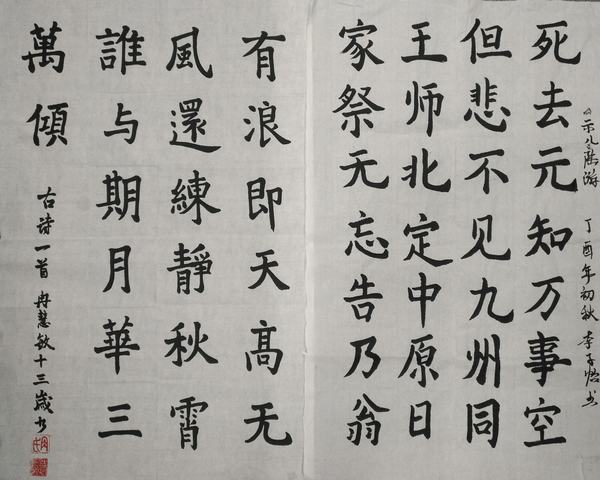 《示儿陆游 丁酉年初秋 李子怡书
死去元知万事空
但悲不见九州同
王师北定中原日
家祭无忘告乃翁
有浪即天高无
風還練靜秋霄
誰与期月華三
萬傾
古诗一首 冉慧敏十三歲书